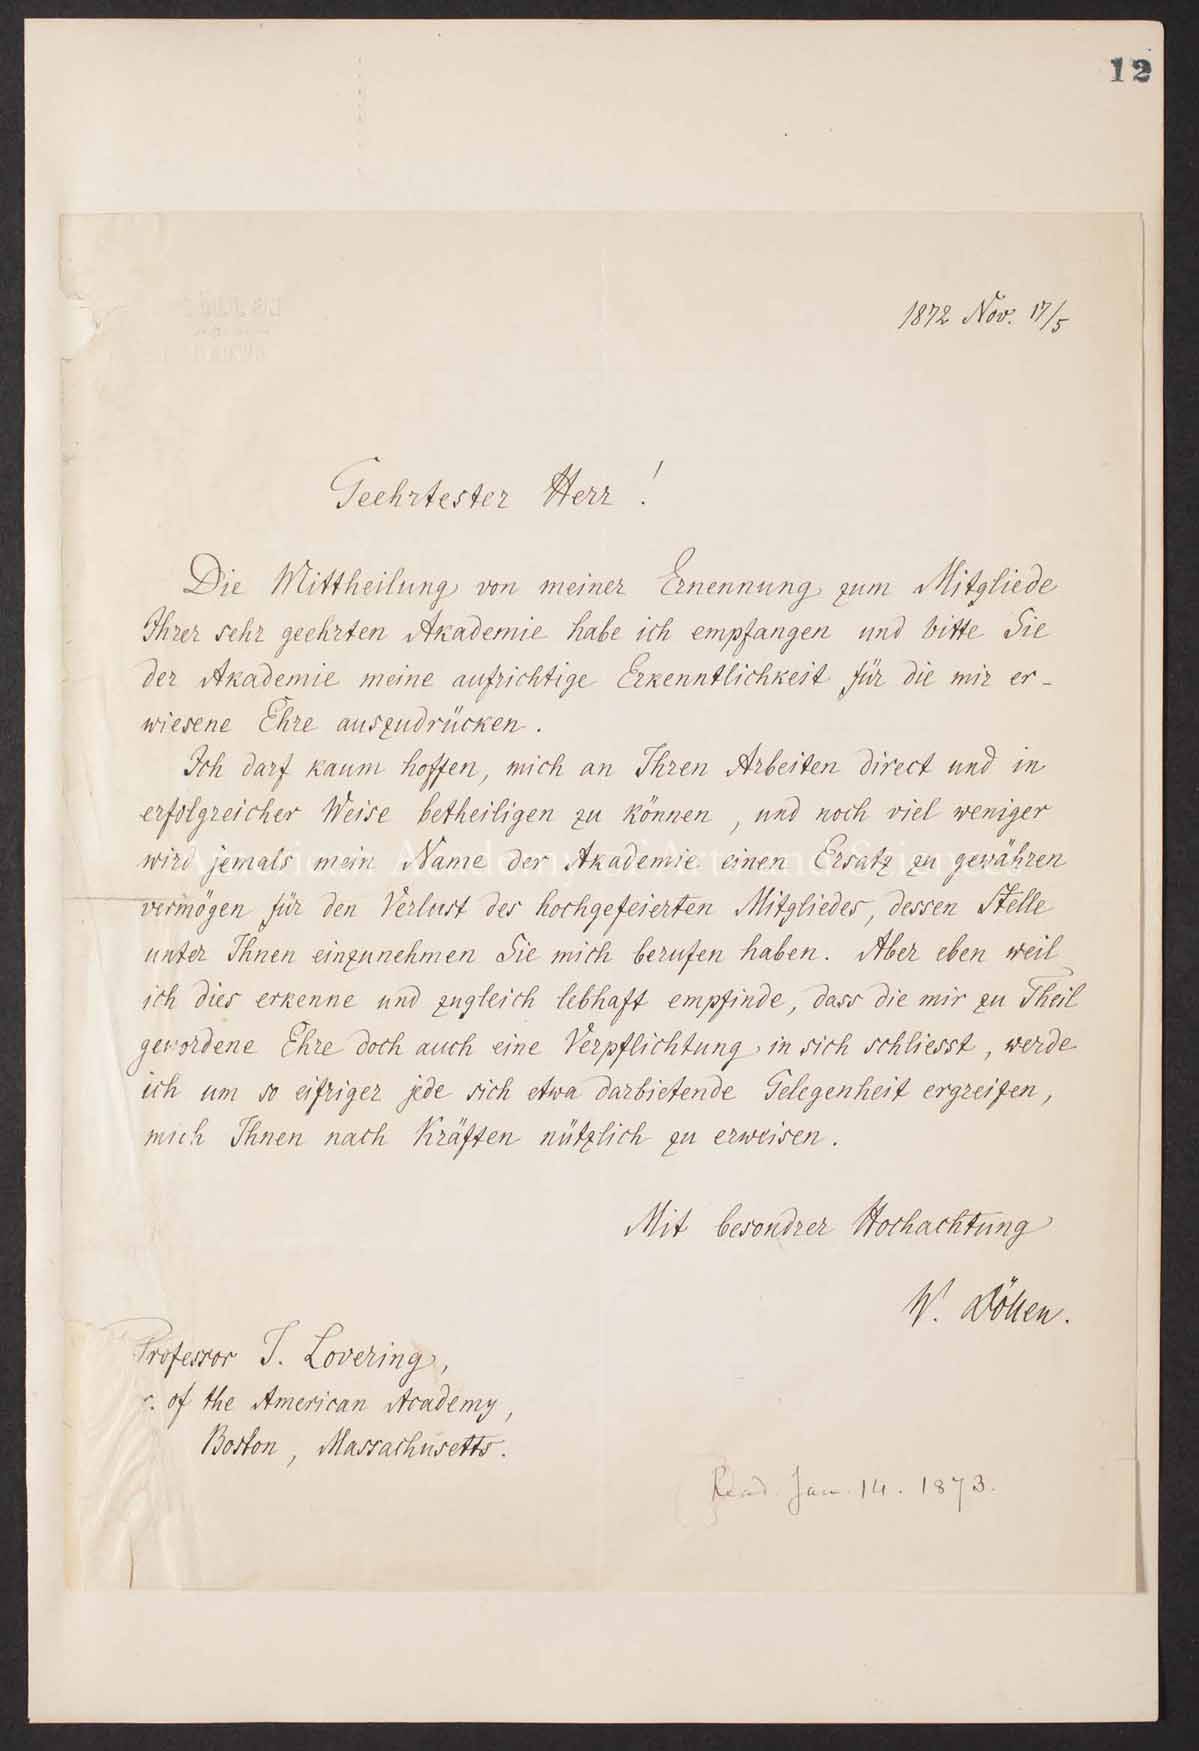 12
1872 Nov. 17/5
Geehrtester Herr!
Die Mittheilung von meiner Ernennung zum Mitgliede
Ihrer sehr geehrten Akademie habe ich empfangen und bitte Sie
der Akademie meine aufrichtige Erkenntlichkeit für die mir er-
wiesene Ehre auszudrücken.
Ich darf kaum hoffen, mich an Ihren Arbeiten direct und in
erfolgreicher Weise betheiligen zu können, und noch viel weniger
wird jemals mein Name der Akademie einen Ersatz zu gewähren
vermögen für den Verlust des hochgefeierten Mitgliedes, dessen Stelle
unter Ihnen einzunehmen Sie mich berufen haben. Aber eben weil
ich dies erkenne und zugleich lebhaft empfinde, dass die mir zu Theil
gewordene Ehre doch auch eine Verpflichtung in sich schliesst, werde
ich um so eifriger jede sich etwa darbietende Gelegenheit ergreifen,
mich Ihnen nach Kräften nützlich zu erweisen.
Mit besondrer Hochachtung
W. Döllen.
Professor J. Lovering,
. of the American Academy,
Boston, Massachusetts.
Read Jan. 14. 1873.
American Academy of Arts and Sciences